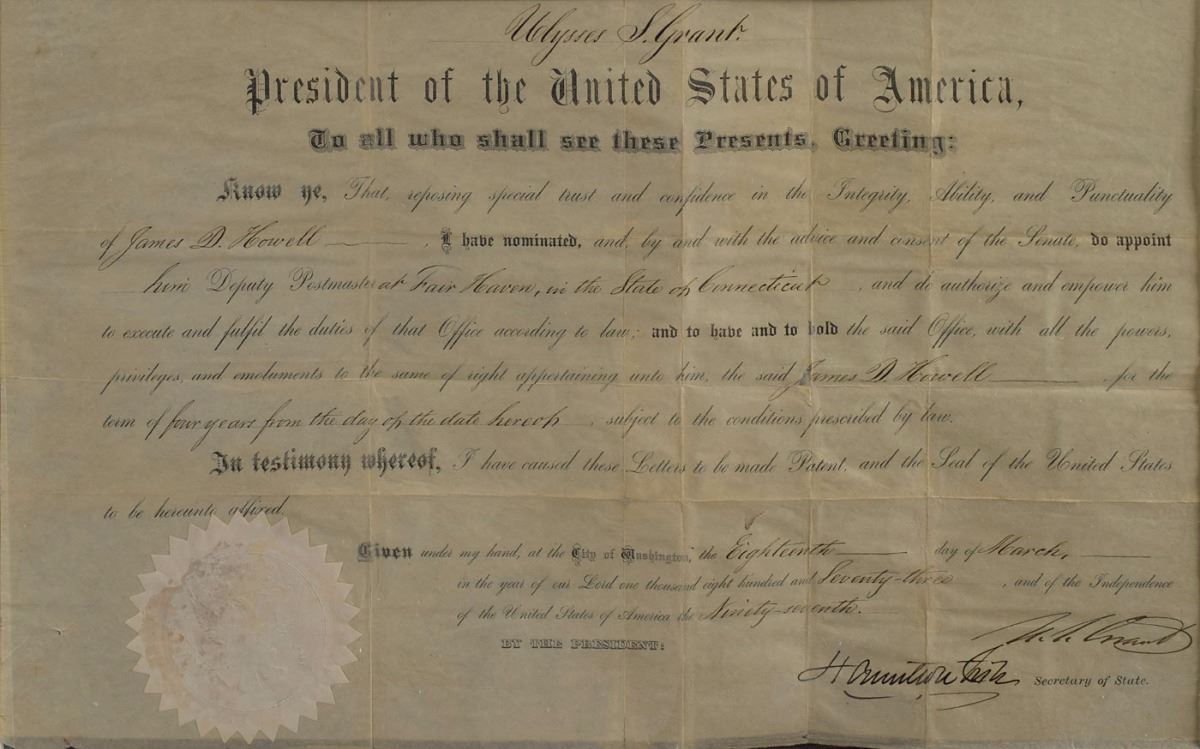 Ulysses S. Grant.
President of the United States of America,
To all who shall see these Presents, Greeting:
Know ye, That, reposing special trust and confidence in the Integrity, Ability, and Punctuality
of James D. Howell, I have nominated, and, by and with the advice and consent of the Senate, do appoint
him Deputy Postmaster at Fair Haven, in the State of Connecticut, and do authorize and empower him
to execute and fulfil the duties of that Office according to law; and to have and to hold the said Office, with all the powers,
privileges, and emoluments to the same of right appertaining unto him, the said James D. Howell, for the
term of four years from the day of the date hereof, subject to the conditions prescribed by law.
In testimony whereof, I have caused these Letters to be made Patent, and the Seal of the United States
to be hereunto affixed.
Given under my hand, at the City of Washington, the Eighteenth day of March,
in the year of our Lord one thousand eight hundred and Seventy-three, and of the Independence
of the United States of America the Ninety-seventh.
U. S. Grant
BY THE PRESIDENT:
Hamilton Fish Secretary of State.